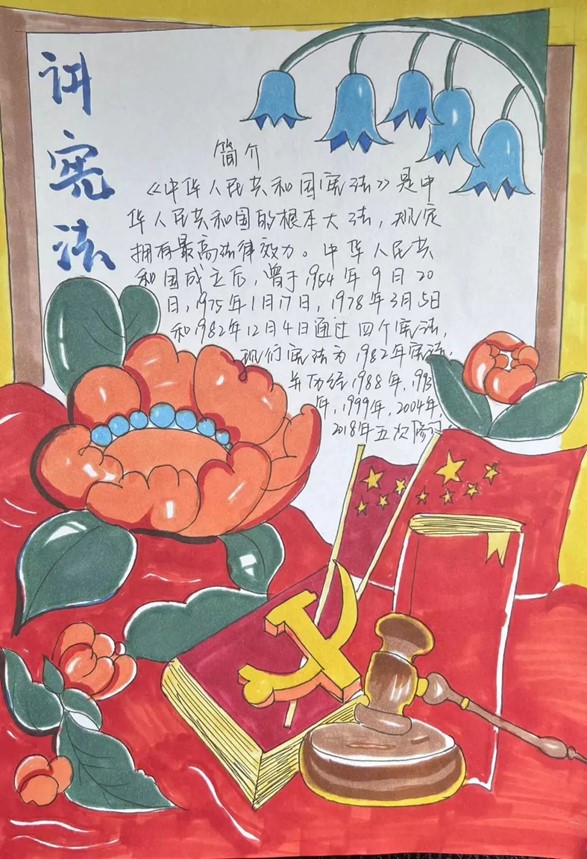 讲宪法
简介
《中华人民共和国宪法》是中
华人民共和国的根本大法，规定
拥有最高法律效力。中华人民共
和国成立后，曾于1954年9月20
日，1975年1月17日，1978年3月5日
和1982年12月4日通过四个宪法，
现行宪法为1982年宪法，
并历经1988年，1993
年，1999年，2004年，
2018年五次修订